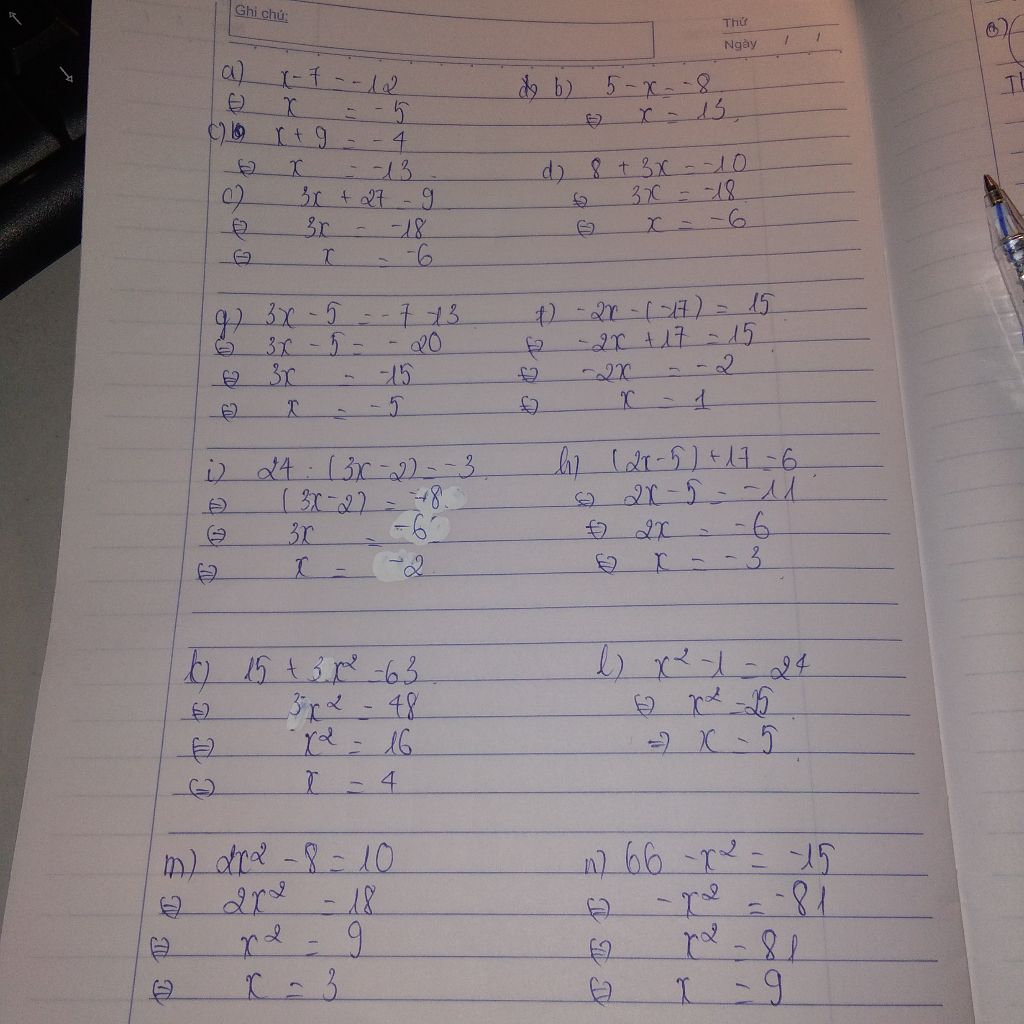 Ghi chú:
Thứ
Ngày / /
a) x - 7 = -12
⇔ x = -5
b) 5 - x = -8
⇔ x = 13
c) x + 9 = -4
⇔ x = -13
d) 8 + 3x = -10
⇔ 3x = -18
⇔ x = -6
c) 3x + 27 = 9
⇔ 3x = -18
⇔ x = -6
g) 3x - 5 = -7 -13
⇔ 3x - 5 = -20
⇔ 3x = -15
⇔ x = -5
f) -2x - (-17) = 15
⇔ -2x + 17 = 15
⇔ -2x = -2
⇔ x = 1
i) 24 : (3x - 2) = -3
⇔ (3x - 2) = -8
⇔ 3x = -6
⇔ x = -2
h) (2x - 5) + 17 = 6
⇔ 2x - 5 = -11
⇔ 2x = -6
⇔ x = -3
k) 15 + 3x² = 63
⇔ 3x² = 48
⇔ x² = 16
⇔ x = 4
l) x² - 1 = 24
⇔ x² = 25
⇒ x = 5
m) 2x² - 8 = 10
⇔ 2x² = 18
⇔ x² = 9
⇔ x = 3
n) 66 - x² = -15
⇔ -x² = -81
⇔ x² = 81
⇔ x = 9